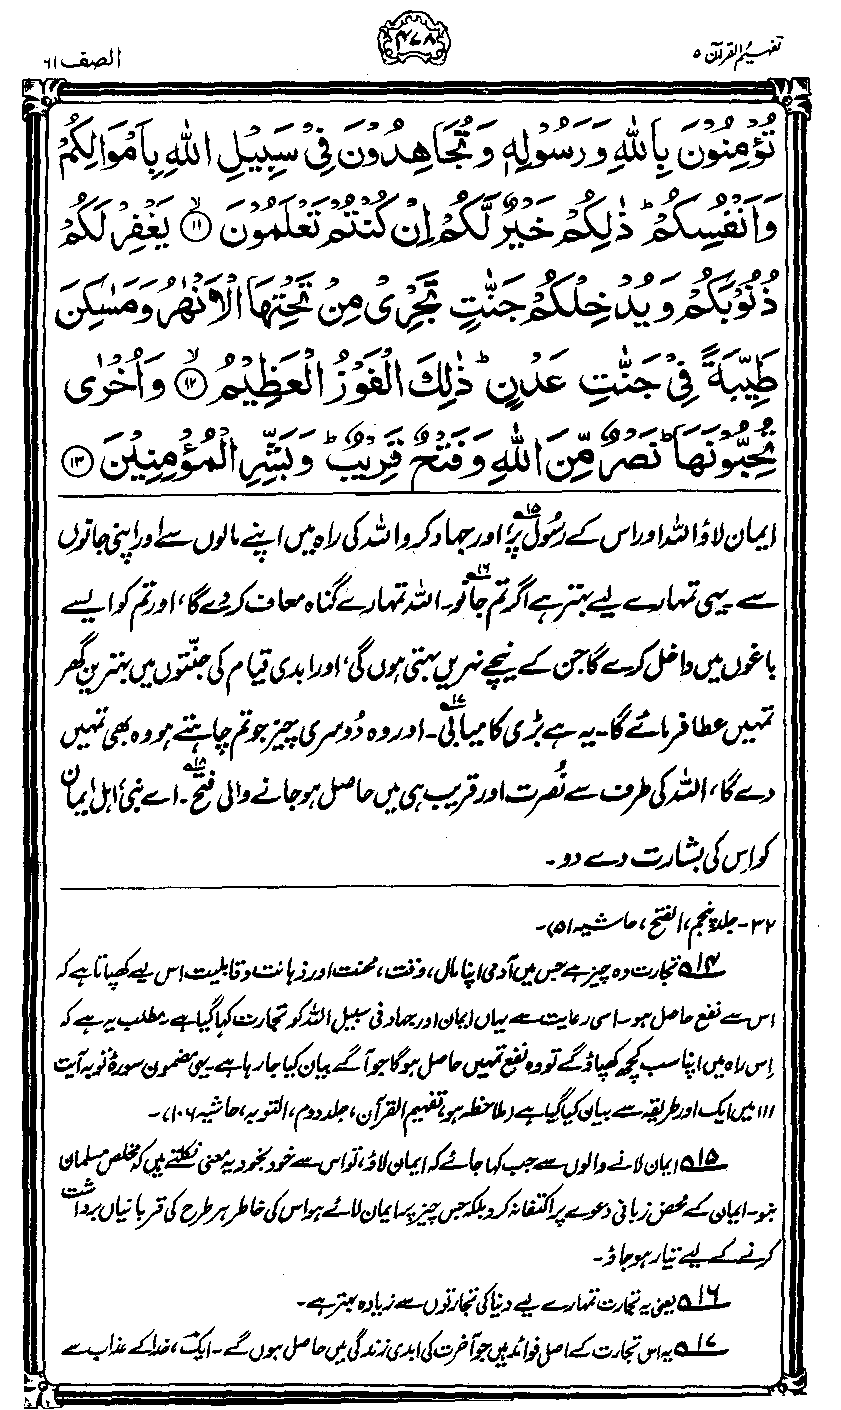 تفہیم القرآن ۵
۴۷۸
الصف ۶۱
تُؤْمِنُوْنَ بِاللّٰهِ وَرَسُوْلِهٖ وَتُجَاهِدُوْنَ فِیْ سَبِیْلِ اللّٰهِ بِاَمْوَالِكُمْ
وَاَنْفُسِكُمْ ؕ ذٰلِكُمْ خَیْرٌ لَّكُمْ اِنْ كُنْتُمْ تَعْلَمُوْنَ ۙ﴿۱۱﴾ یَغْفِرْ لَكُمْ
ذُنُوْبَكُمْ وَیُدْخِلْكُمْ جَنّٰتٍ تَجْرِیْ مِنْ تَحْتِهَا الْاَنْهٰرُ وَمَسٰكِنَ
طَیِّبَةً فِیْ جَنّٰتِ عَدْنٍ ؕ ذٰلِكَ الْفَوْزُ الْعَظِیْمُ ۙ﴿۱۲﴾ وَاُخْرٰی
تُحِبُّوْنَهَا ؕ نَصْرٌ مِّنَ اللّٰهِ وَفَتْحٌ قَرِیْبٌ ؕ وَبَشِّرِ الْمُؤْمِنِیْنَ ﴿۱۳﴾
ایمان لاؤ اللہ اور اس کے رسُول پر۱۵، اور جہاد کرو اللہ کی راہ میں اپنے مالوں سے اور اپنی جانوں
سے۔ یہی تمہارے لیے بہتر ہے اگر تم جانو۱۶۔ اللہ تمہارے گناہ معاف کر دے گا، اور تم کو ایسے
باغوں میں داخل کرے گا جن کے نیچے نہریں بہتی ہوں گی، اور ابدی قیام کی جنّتوں میں بہترین گھر
تمہیں عطا فرمائے گا۔ یہ ہے بڑی کامیابی۱۷۔ اور وہ دُوسری چیز جو تم چاہتے ہو وہ بھی تمہیں
دے گا، اللہ کی طرف سے نُصرت اور قریب ہی میں حاصل ہو جانے والی فتح۱۸۔ اے نبیؐ، اہلِ ایمان
کو اِس کی بشارت دے دو۔
۳۲۔ جلد پنجم، الفتح، حاشیہ ۵۱)۔
۱۴؎ تجارت وہ چیز ہے جس میں آدمی اپنا مال، وقت، محنت اور ذہانت و قابلیت اس لیے کھپاتا ہے کہ
اس سے نفع حاصل ہو۔ اسی رعایت سے یہاں ایمان اور جہاد فی سبیل اللہ کو تجارت کہا گیا ہے۔ مطلب یہ ہے کہ
اِس راہ میں اپنا سب کچھ کھپاؤ گے تو وہ نفع تمہیں حاصل ہوگا جو آگے بیان کیا جا رہا ہے۔ یہی مضمون سورۂ توبہ آیت
۱۱۱ میں ایک اور طریقہ سے بیان کیا گیا ہے (ملاحظہ ہو، تفہیم القرآن، جلد دوم، التوبہ، حاشیہ ۱۰۶)۔
۱۵؎ ایمان لانے والوں سے جب کہا جائے کہ ایمان لاؤ، تو اس سے خود بخود یہ معنی نکلتے ہیں کہ مخلص مسلمان
بنو۔ ایمان کے محض زبانی دعوے پر اکتفا نہ کرو بلکہ جس چیز پر ایمان لائے ہو اس کی خاطر ہر طرح کی قربانیاں برداشت
کرنے کے لیے تیار ہو جاؤ۔
۱۶؎ یعنی یہ تجارت تمہارے لیے دنیا کی تجارتوں سے زیادہ بہتر ہے۔
۱۷؎ یہ اس تجارت کے اصل فوائد ہیں جو آخرت کی ابدی زندگی میں حاصل ہوں گے۔ ایک، خدا کے عذاب سے